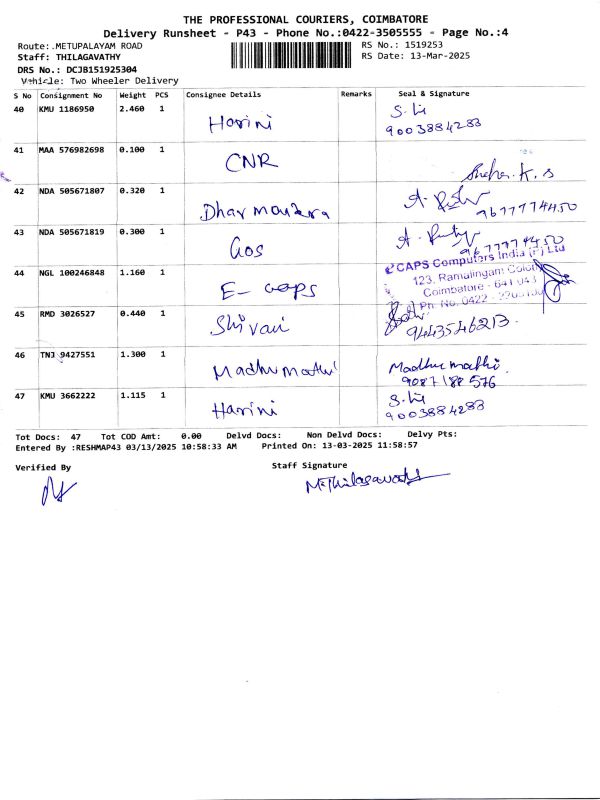 THE PROFESSIONAL COURIERS, COIMBATORE
Delivery Runsheet - P43 - Phone No.:0422-3505555 - Page No.:4
Route:.METUPALAYAM ROAD RS No.: 1519253
Staff: THILAGAVATHY RS Date: 13-Mar-2025
DRS No.: DCJB151925304
Vehicle: Two Wheeler Delivery
S No Consignment No Weight PCS Consignee Details Remarks Seal & Signature
40 KMU 1186950 2.460 1 Harini
9003884283
41 MAA 576982698 0.100 1 CNR
42 NDA 505671807 0.320 1
9677774450
43 NDA 505671819 0.300 1
9677774450
44 NGL 100246848 1.160 1
CAPS Computers India (P) Ltd
123, Ramalingam Colony
Coimbatore - 641 043
Ph. No. 0422 -
45 RMD 3026527 0.440 1 Shivani
9443546213
46 TNJ 9427551 1.300 1 Madhumathi Madhumathi.
9087188576
47 KMU 3662222 1.115 1 Harini
9003884283
Tot Docs: 47 Tot COD Amt: 0.00 Delvd Docs: Non Delvd Docs: Delvy Pts:
Entered By :RESHMAP43 03/13/2025 10:58:33 AM Printed On: 13-03-2025 11:58:57
Verified By Staff Signature
M.Thilagavathy